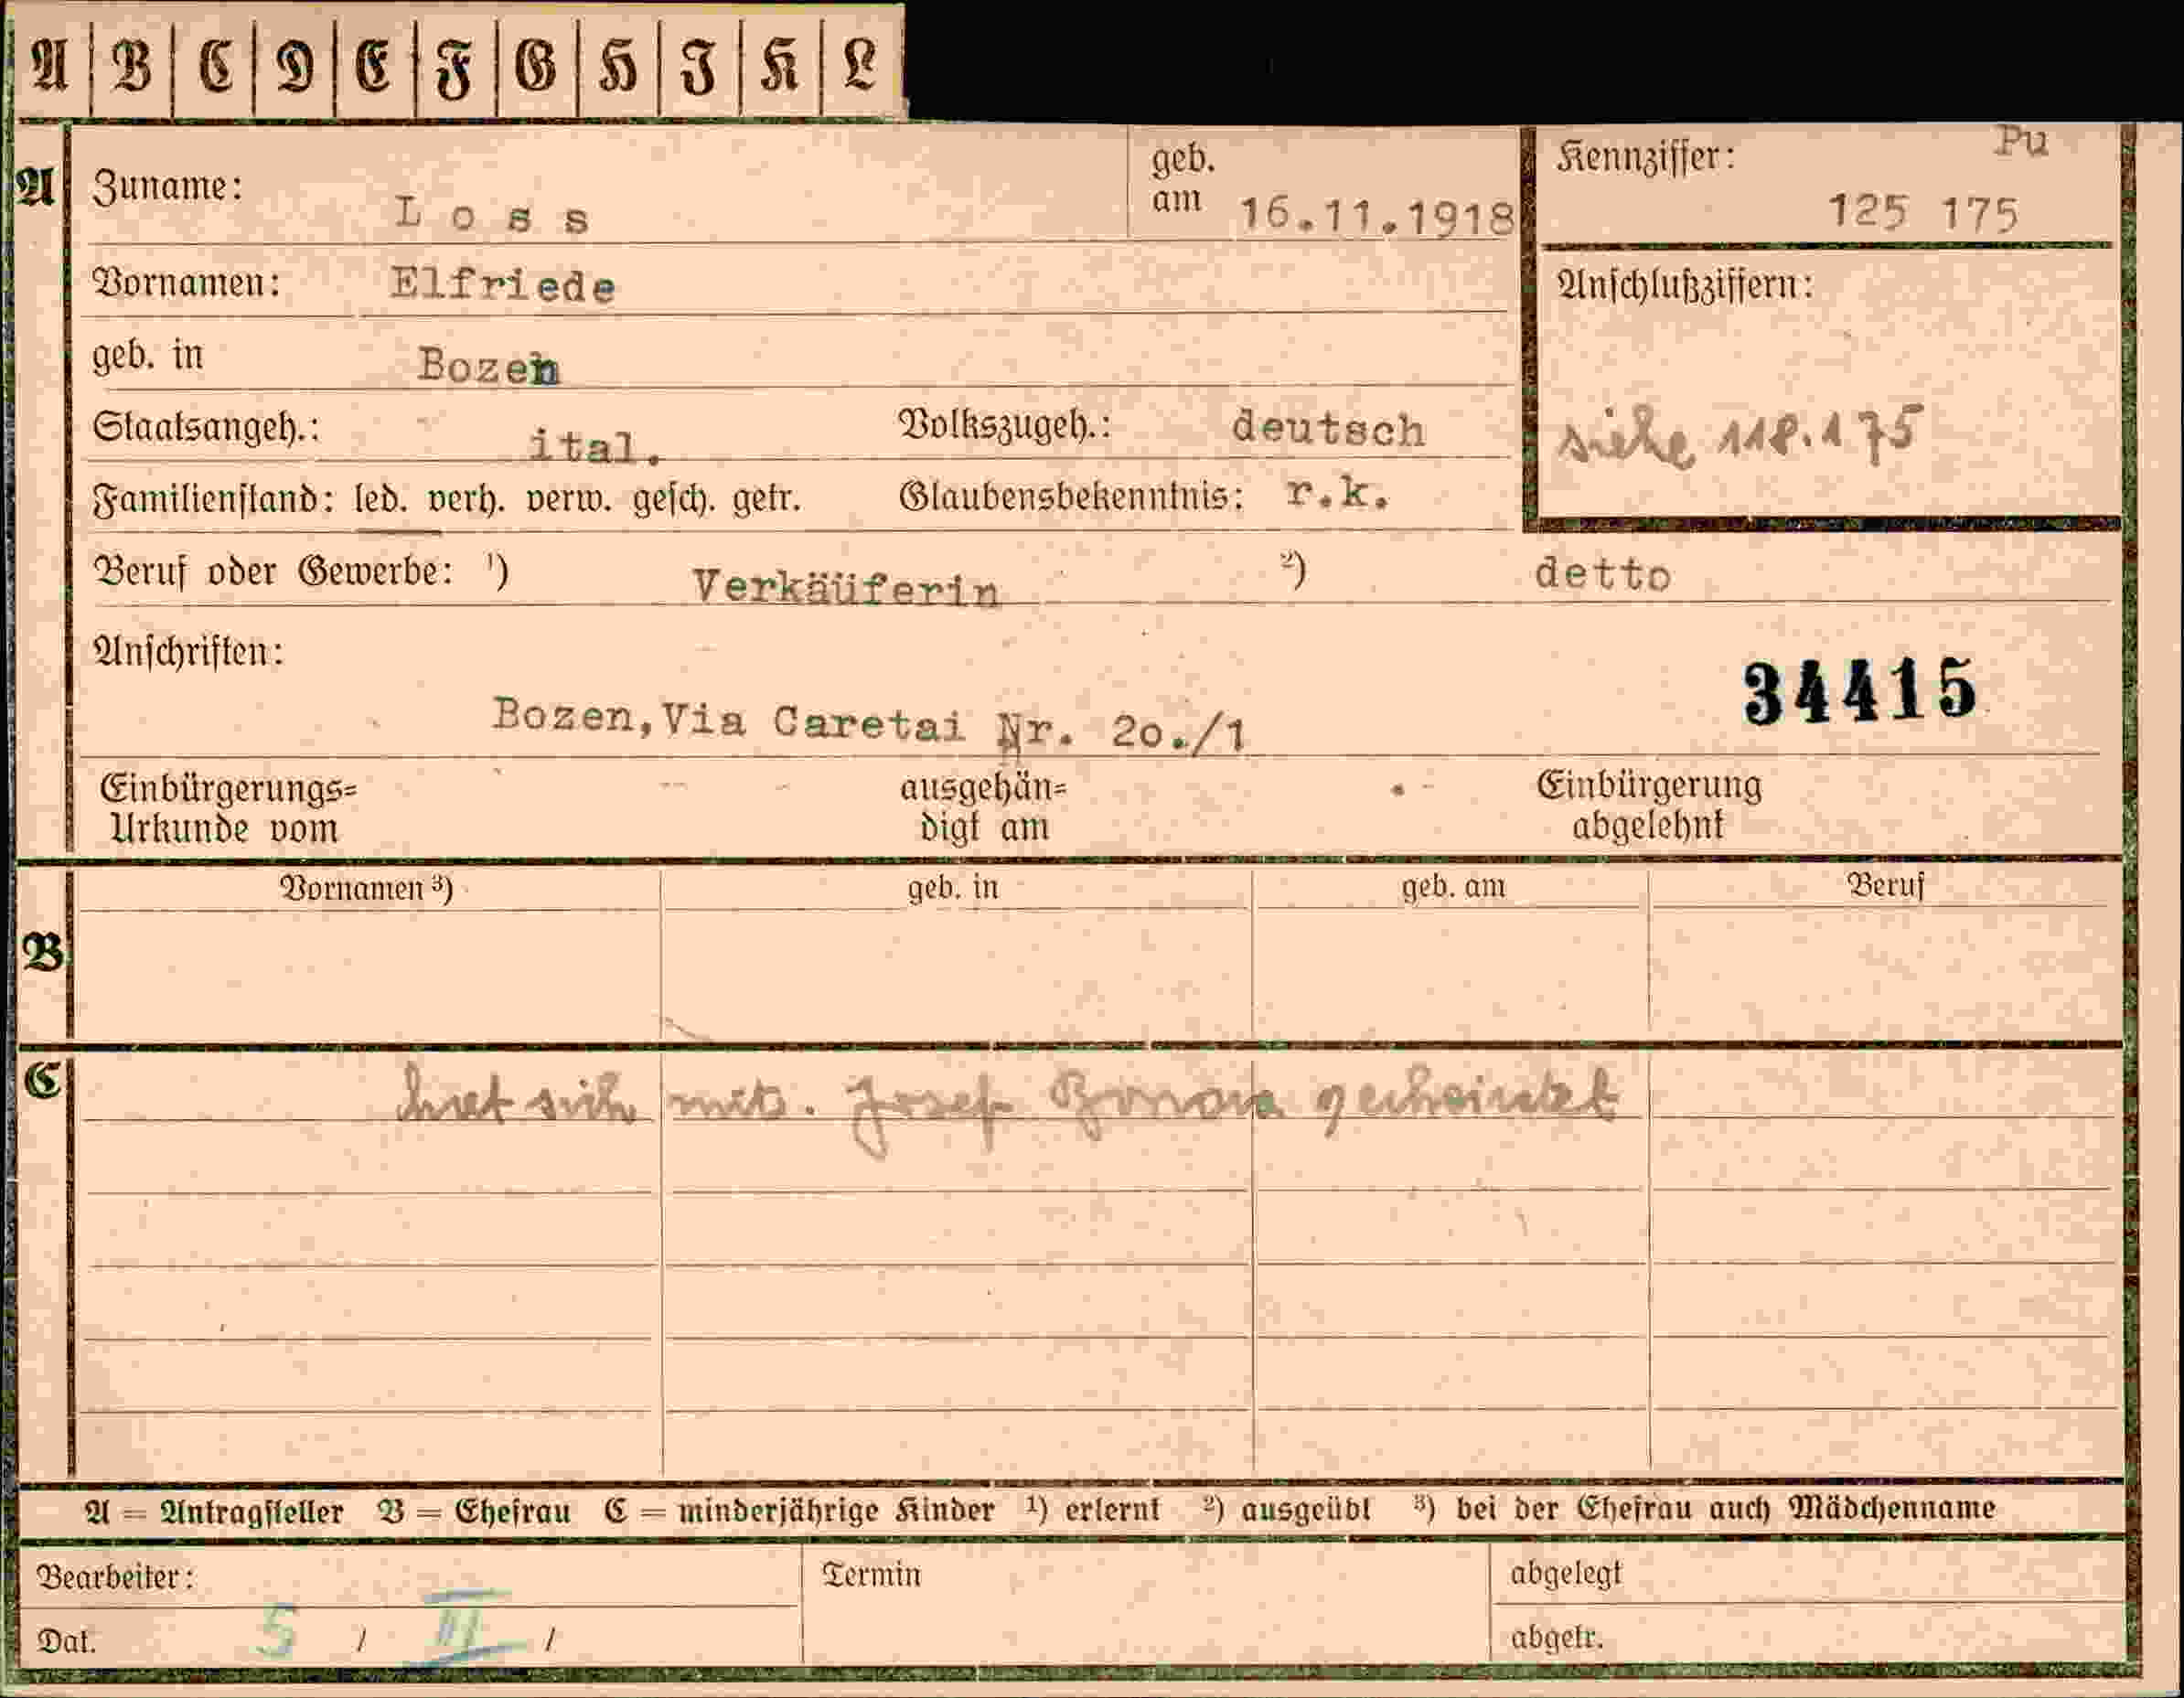 A B C D E F G H I K L
A Zuname: Loss geb. am 16.11.1918 Kennziffer: Pu 125 175
Vornamen: Elfriede Anschlußziffern:
geb. in Bozen
Staatsangeh.: ital. Volkszugeh.: deutsch siehe 118.175
Familienstand: led. verh. verw. gesch. getr. Glaubensbekenntnis: r.k.
Beruf oder Gewerbe: ¹) Verkäüferin ²) detto
Anschriften:
34415
Bozen,Via Caretai Nr. 2o./1
Einbürgerungs= ausgehän= Einbürgerung
Urkunde vom digt am abgelehnt
Vornamen ³) geb. in geb. am Beruf
B
C hat sich mit. Josef geheiratet
A = Antragsteller B = Ehefrau C = minderjährige Kinder ¹) erlernt ²) ausgeübt ³) bei der Ehefrau auch Mädchenname
Bearbeiter: Termin abgelegt
Dat. 5 / II / abgetr.